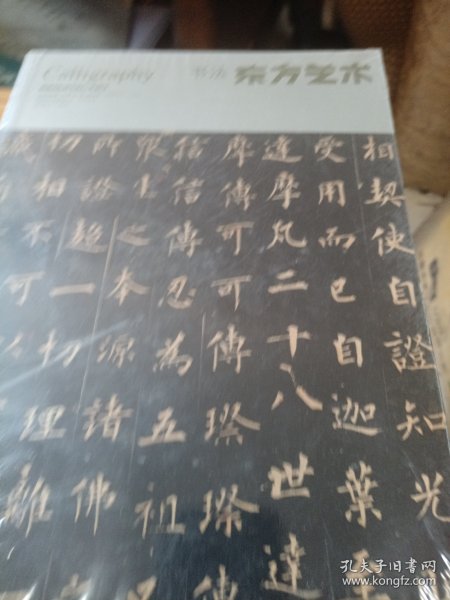 Calligraphy
书法 东方艺术
相契使自證知光
受用而已自迦葉至
達摩凡二十八世達
摩傳可可傳璨璨傳
信信傳忍為五祖
眾生之本源諸佛
所證超一切理離
切相不可以
孔夫子旧书网
www.kongfz.com